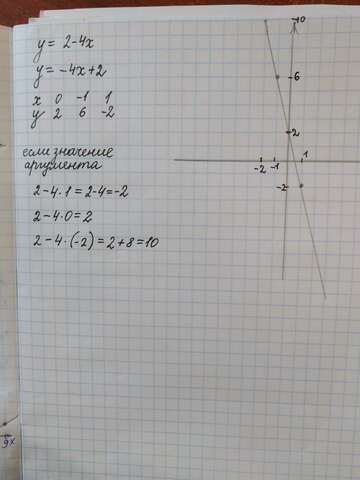 y = 2-4x
y = -4x+2
x 0 -1 1
y 2 6 -2
если значение
аргумента
2-4·1=2-4=-2
2-4·0=2
2-4·(-2)=2+8=10
10
6
2
-2 -1 1
-2
9x